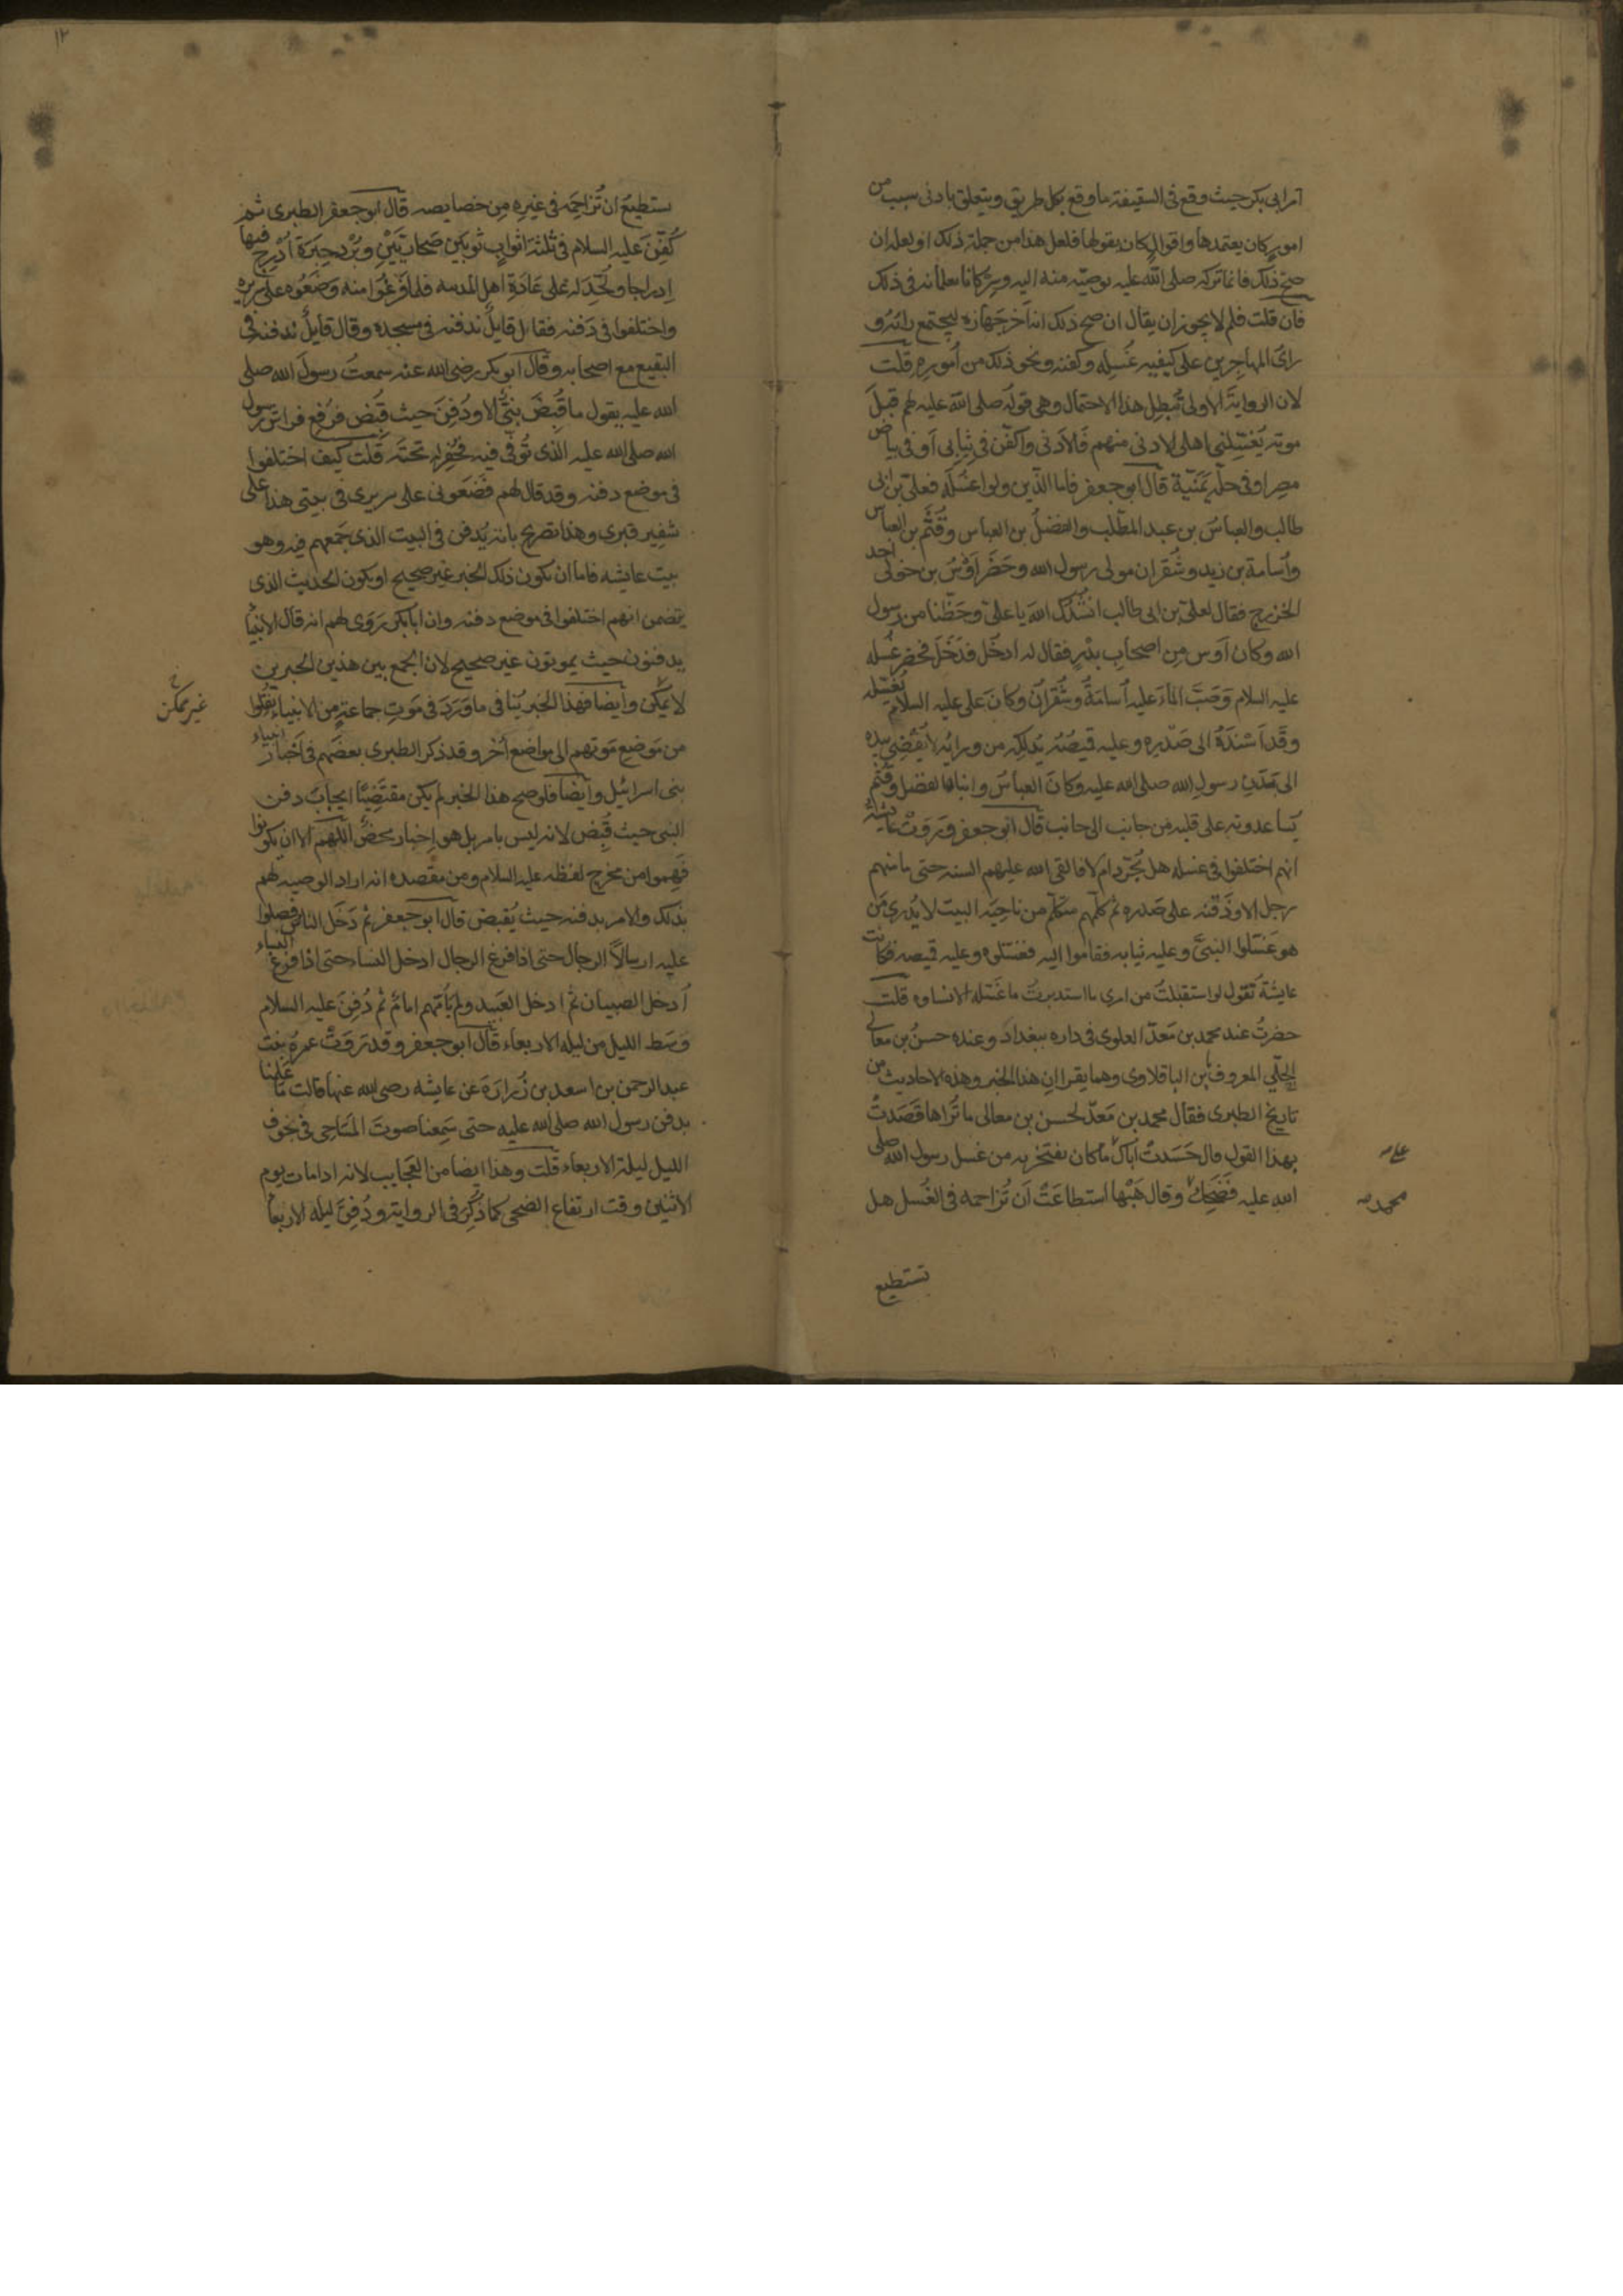 امر ابي بكر حيث وقع في السقيفة ما وقع بكل طريق ويتعلق بادنى سبب من
امور كان يعتمدها واقوال كان يقولها فلعل هذا من جملة ذلك او لعله ان
صح ذلك فانما تركه صلى الله عليه بوصيّه منه اليه وسرّ كانا يعلمانه في ذلك
فان قلت فلم لا يجوز ان يقال ان صح ذلك انه اخر جهازه ليجتمع رايه و
راى المهاجرين على كيفيه غُسله وكفنه ونحو ذلك من أموره قلت
لان الرواية الاولى تُبطل هذا الاحتمال وهي قوله صلى الله عليه لهم قبل
موته يَغسِلني اهلى الادنى منهم فالادنى واكفّن في ثيابى أو في بياض
مصر او في حلّه يَمنية قال ابو جعفر فاما الذين ولوا غسله فعلىّ بن ابى
طالب والعباسُ بن عبد المطّلب والفضلُ بن العباس وقُثَم بن العباس
وأسامة بن زيد وشُقران مولى رسول الله وحَضَر أوسُ بن خولى احد
الخزرج فقال لعلى بن ابى طالب انشُدُك اللهَ يا علىّ وحَظّنا من رسول
الله وكان أوس من اصحاب بدْرٍ فقال له ادخل فدخَلَ فحضر غُسله
عليه السلام وَصَبَّ الماءَ عليه أسامةُ وشُقران وكان على عليه السلام يُغسّله
وقد أسندَهُ الى صَدره وعليه قميصُه يَدلكه من ورائه لا يُفضِي بيده
الى بَدَنِ رسول الله صلى الله عليه وكان العباسُ وابناه الفضل وقُثَم
يُساعدونه على قلبه من جانب الى جانب قال ابو جعفر وَرَوَتْ عايشة
انهم اختلفوا في غسله هل يُجَرّد ام لا فالقى الله عليهم السنه حتى ما منهم
رجل الا وذَقنه على صدره ثم كلّمهم متكلّم من ناحية البيت لا يُدرى مَن
هو غَسّلوا النبيَّ وعليه ثيابه فقاموا اليه فغسّلوه وعليه قميصه فكانت
عايشة تقول لو استقبلتُ من امرى ما استدبرتُ ما غَسّله الا نساوه قلت
حضرتُ عند محمد بن مَعَدّ العلوى في داره ببغداد وعنده حسنُ بن معالى
الحِلّى المعروف بابن الباقلاوى وهما يقراان هذا الخبر وهذه الاحاديث من
تاريخ الطبرى فقال محمد بن مَعَدّ لحسن بن معالى ما تُراها قَصَدتْ
بهذا القول قال حَسَدتْ أباك ما كان يفتخر به من غسل رسول الله صلى
الله عليه فضَحِك وقال هَبْها استطاعَتْ أن تُزاحمه في الغُسل هل
علىّ
محمد
تستطيع
١٢
تستطيعُ ان تُزاحِمَه في غيرِه من خصايصه قال ابو جعفر الطبرى ثم
كُفّنَ عليه السلام في ثلثة اثواب ثوبَين صُحاريَّيْنِ وبُرْد حِبَرَة أدرِج فيها
ادراجا ولُحِّد له على عَادَةِ اهل المدينه فلما فرغوا منه وَضَعُوه على سريره
واختلفوا في دَفنه فقال قايلٌ ندفنه في مسجده وقال قايلٌ ندفنه في
البقيع مع اصحابه وقال ابو بكر رضى الله عنه سمعتُ رسولَ الله صلى
الله عليه يقول ما قُبِضَ نبىٌّ الا ودُفِنَ حيث قُبِض فرُفِع فراشُ رسول
الله صلى الله عليه الذى تُوُفّى فيه فحُفِر له تحته قلت كيف اختلفوا
في موضع دفنه وقد قال لهم فضَعُونى على سريرى في بيتى هذا على
شفِير قبرى وهذا تصريح بانه يُدفن في البيت الذى جمعهم فيه وهو
بيت عايشه فاما ان يكون ذلك الخبر غير صحيح او يكون الحديث الذى
يتضمن انهم اختلفوا في موضع دفنه وان ابا بكر رَوَى لهم انه قال الانبياُ
يدفنون حيث يموتون غير صحيح لان الجمع بين هذين الخبرين
لا يمكن وأيضا فهذا الخبر يُنافى ما وَرَدَ في مَوتِ جماعةٍ من الانبياء نُقلوا
غير ممكن خ
من مَوضِع مَوتهم الى مواضعَ أخر وقد ذكر الطبرى بعضَهم في أخبار انبياء
بنى اسرائيل وأيضا فلو صح هذا الخبر لم يكن مقتَضِيًا ايجابَ دفن
النبى حيث قُبِض لانه ليس بامر بل هو اِخبار محضٌ اللهم الا ان يكونوا
فَهِموا من مخرج لفظه عليه السلام ومن مقصده انه اراد الوصيه لهم
بذلك والامر بدفنه حيث يُقبض قال ابو جعفر ثم دَخَلَ الناس فصلوا
عليه ارسالاً الرجال حتى اذا فرغ الرجال ادخل النساء حتى اذا فرغ النساء
أدخل الصبيان ثم ادخل العَبيد ولم يَأمّهم امامٌ ثم دُفِنَ عليه السلام
وَسَط الليل من ليله الاربعاء قال ابو جعفر وقد رَوَتْ عمرةُ بنت
عبد الرحمن بن اسعد بن زُرارَةَ عن عايشه رضى الله عنها قالت ما عَلِمنا
بدفن رسول الله صلى الله عليه حتى سَمِعنا صوتَ المسَاحِى في جوف
الليل ليلة الاربعاء قلت وهذا ايضا من العَجايب لانه اذا مات يوم
الاثنين وقت ارتفاع الضحى كما ذُكِرَ في الرواية ودُفِنَ ليله الاربعاُ